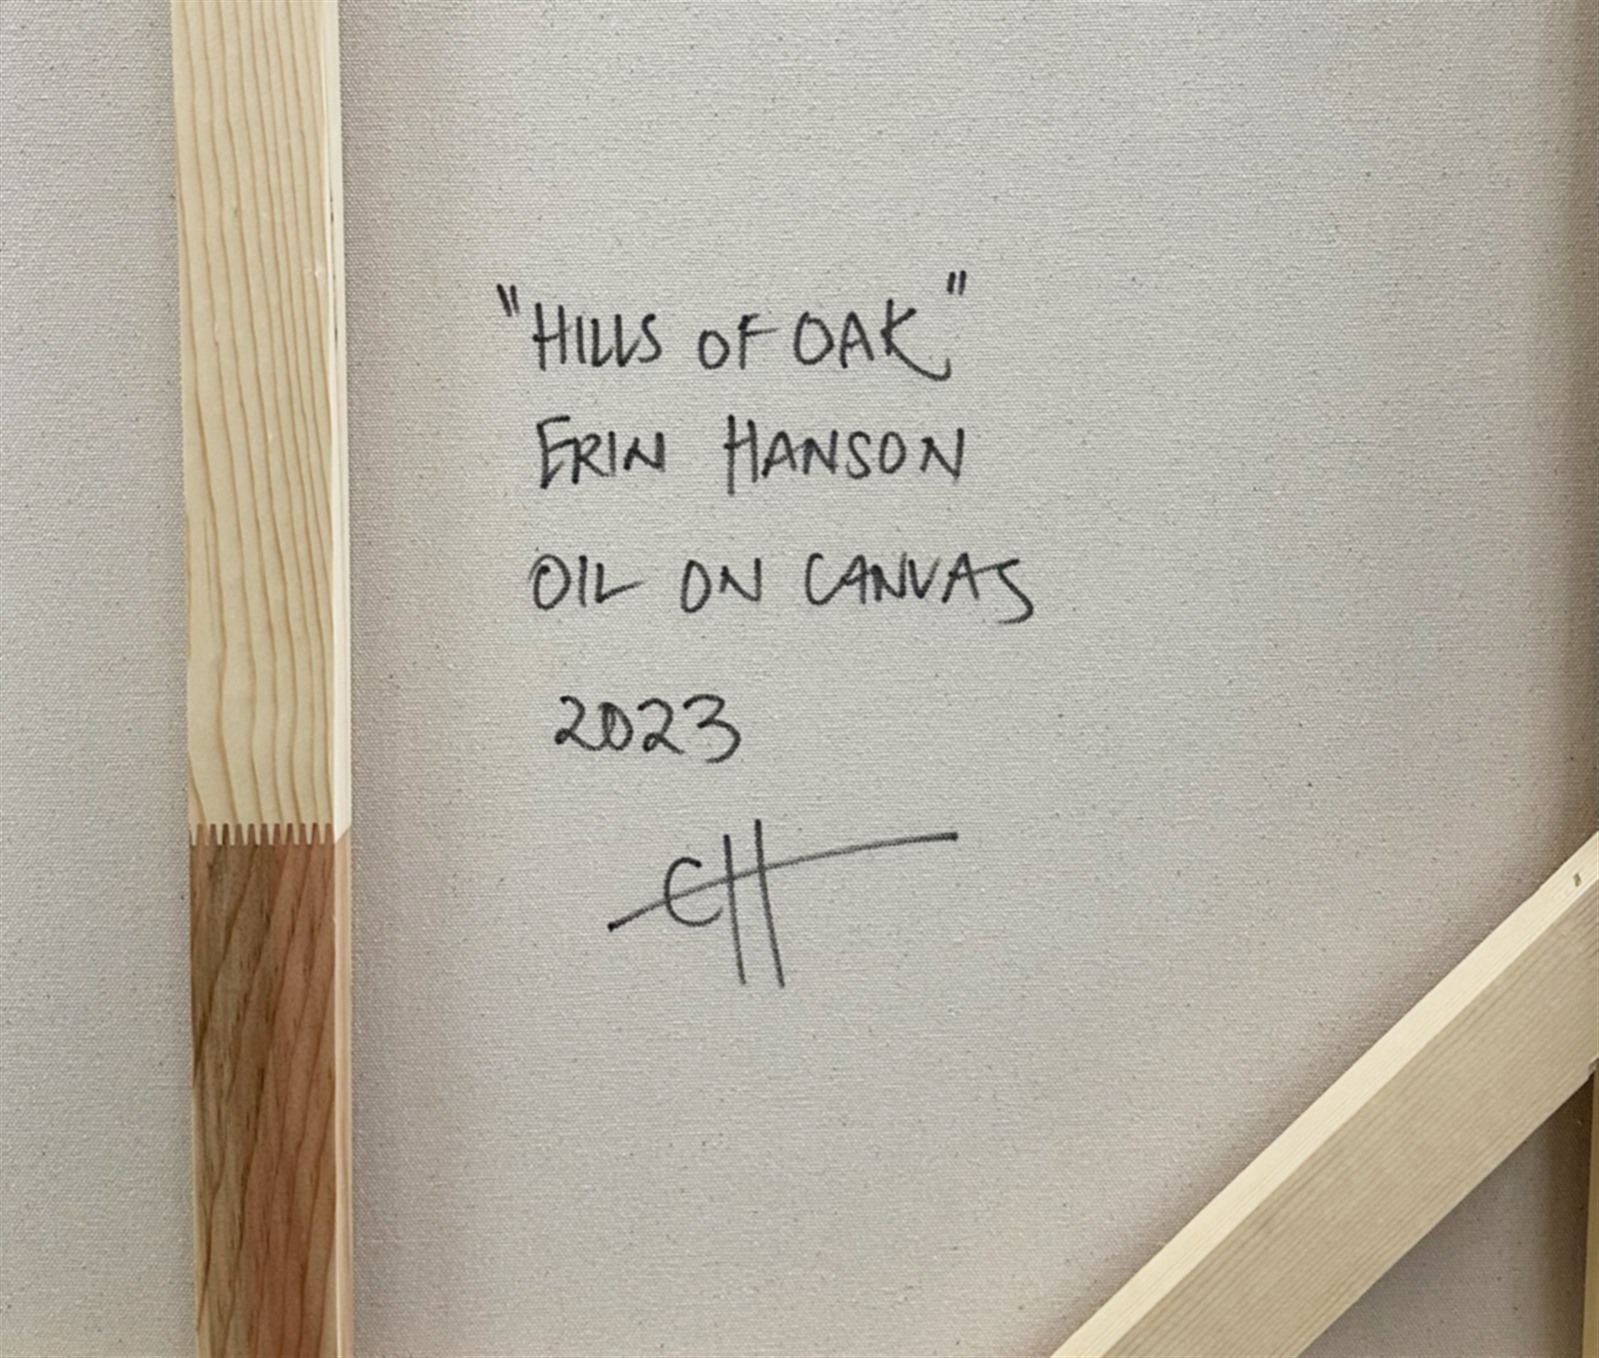 "HILLS OF OAK"
ERIN HANSON
OIL ON CANVAS
2023
EH